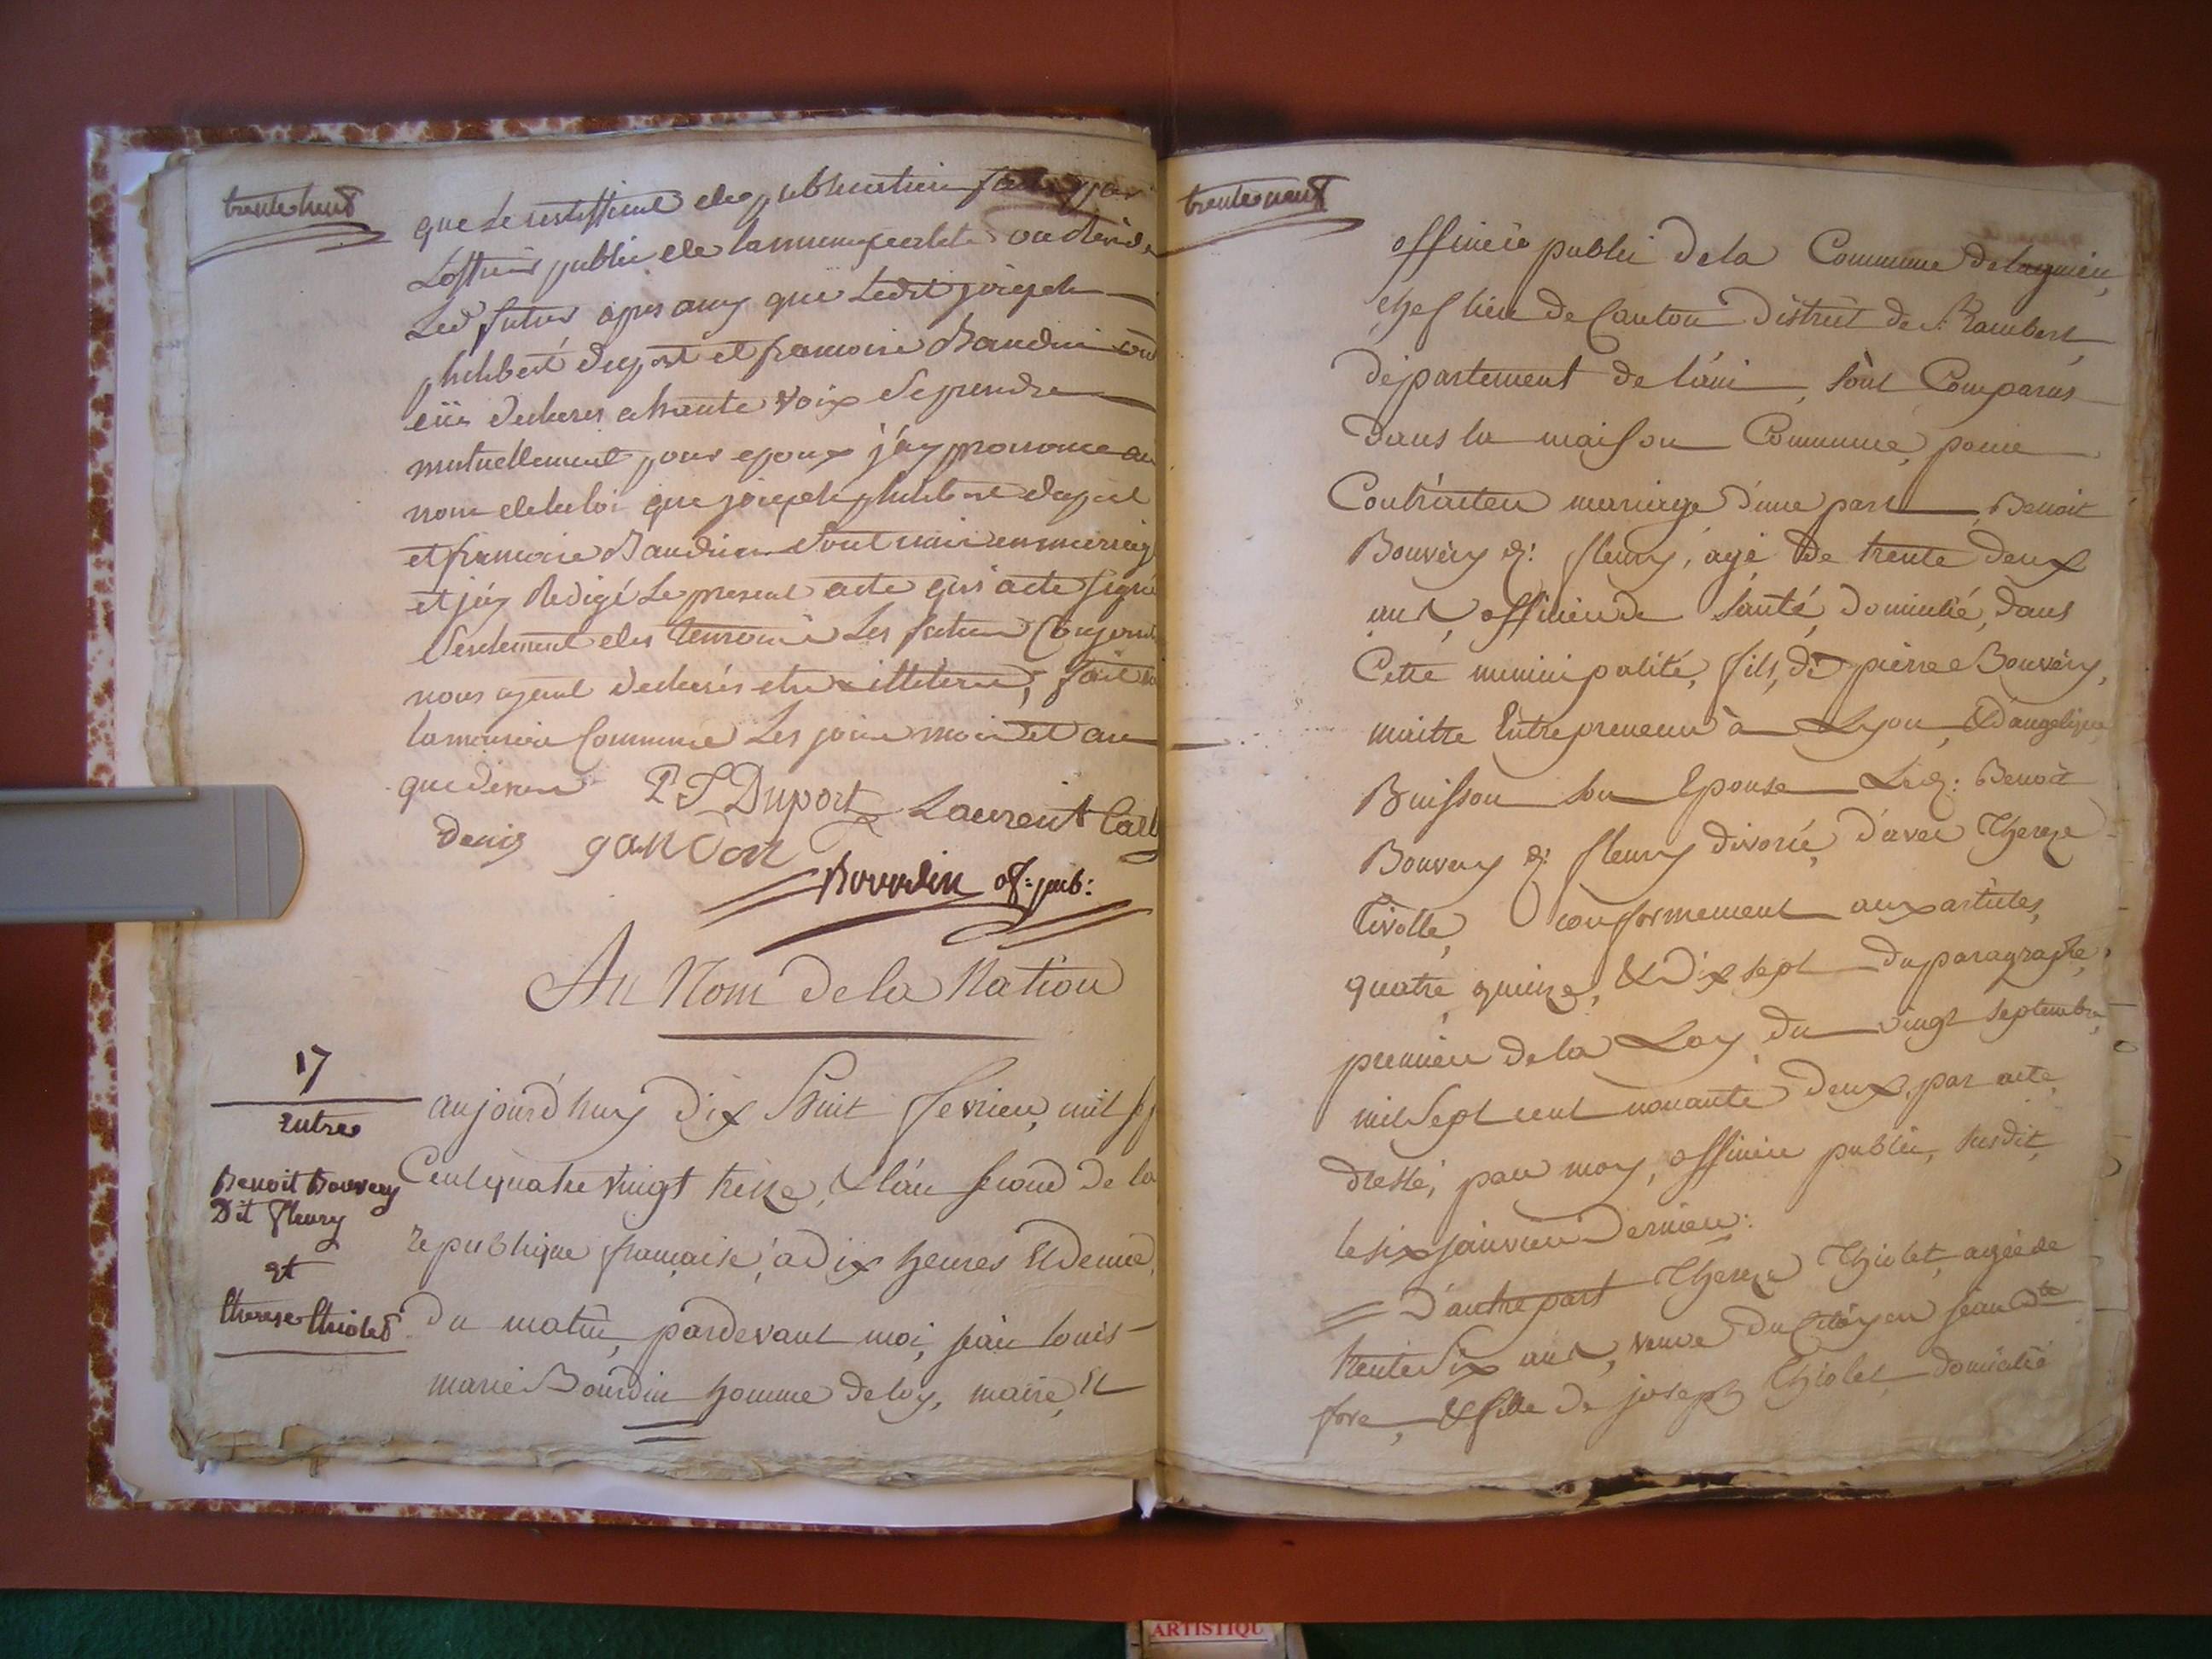 trente huit
que Le certifficat de publication faite par
Lofficier public de la municipalité ou resid
Led futur apres avoir que Ledit joseph
philibert duport et francoise Baudin ont
eüe declares a haute voix se prendre
mutuellement pour epoux j'ay prononcé au
nom de la loi que joseph philibert duport
et francoise Baudin sont unis en mariag
et j'ay Redigé Le present acte qui a eté signé
seulement des temoins Les futurs Conjoint
nous ayant declarés etre illiterés, fait en
la maison Commune Les jour mois et an
que dessus P J Duport Laurent Call
denis gancon
Bourdin of: pub:
Au Nom de la Nation
17
Entre
Benoit Bouvery
Dit fleury
et
therese thiolet
aujourd'huy dix huit fevrier, mil sep
Cent quatre vingt treize, & l'an second de la
republique française, a dix heures Et demie,
du matin, pardevant moi, jean louis
marie Bourdin homme de loy, maire, Et
trente neuf
officier public de la Commune de lagnieu,
chef lieu de Canton District de St: Rambert,
département de l'ain, sont Comparus
dans la maison Commune, pour
Contracter mariage d'une part Benoit
Bouvery dt: fleury, agé de trente deux
ans, officier de santé, domicilié, dans
Cette municipalité, fils, de pierre Bouvery,
maitre Entrepreneur à Lyon, Et d'angelique
Buisson son Epouse Led: Benoit
Bouvery dt: fleury divorcé, d'avec Thereze
Tivolle, conformement aux articles,
quatre quinze, & dix sept du paragraphe,
premier de la Loy du vingt septembre,
mil sept cent nonante deux, par acte,
dressé, par moy, officier public, susdit,
le six janvier dernier:
D'autre part Thereze Thiolet, agée de
trente six ans, veuve du Citoyen jean bte
fore, & fille de joseph Thiolet domicilié
ARTISTIQU